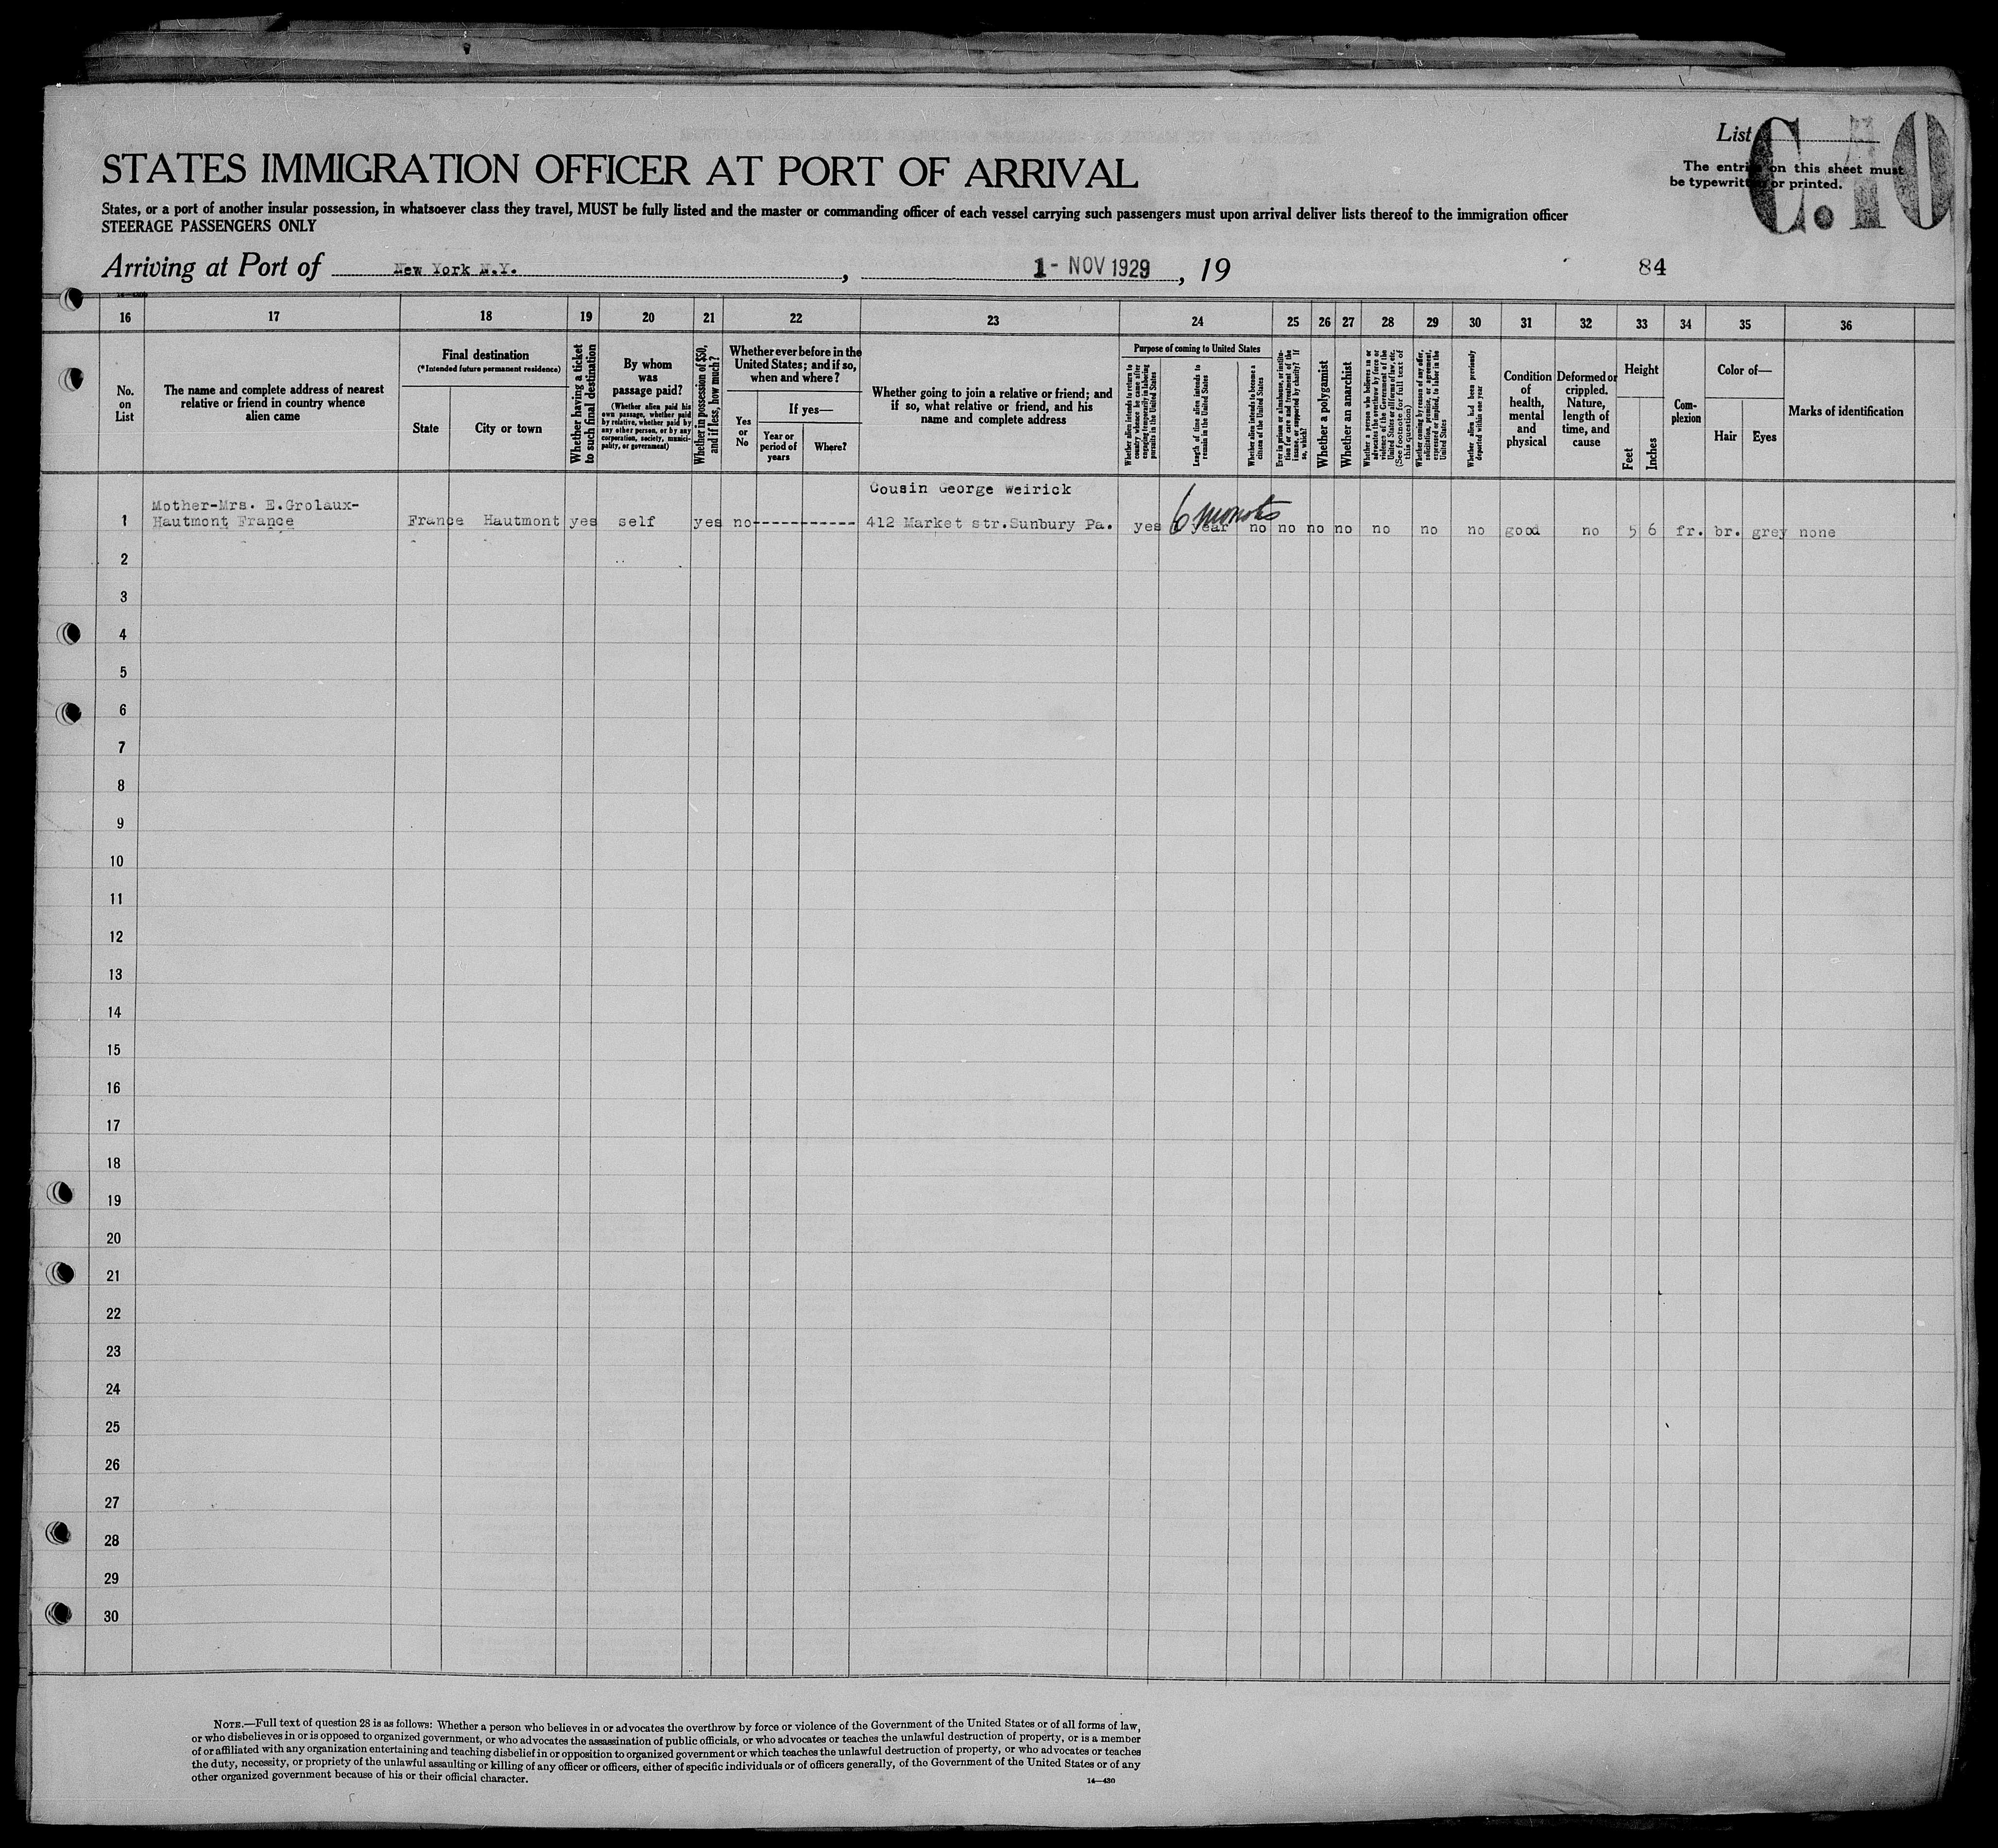 List
C. 10
The entries on this sheet must
be typewritten or printed.
STATES IMMIGRATION OFFICER AT PORT OF ARRIVAL
States, or a port of another insular possession, in whatsoever class they travel, MUST be fully listed and the master or commanding officer of each vessel carrying such passengers must upon arrival deliver lists thereof to the immigration officer
STEERAGE PASSENGERS ONLY
Arriving at Port of New York N.Y. , 1- NOV 1929 , 19
84
16 17 18 19 20 21 22 23 24 25 26 27 28 29 30 31 32 33 34 35 36
No.
on
List
The name and complete address of nearest
relative or friend in country whence
alien came
Final destination
(*Intended future permanent residence)
State
City or town
Whether having a ticket
to such final destination
By whom
was
passage paid?
(Whether alien paid his
own passage, whether paid
by relative, whether paid by
any other person, or by any
corporation, society, munici-
pality, or government)
Whether in possession of $50,
and if less, how much?
Whether ever before in the
United States; and if so,
when and where?
Yes
or
No
If yes—
Year or
period of
years
Where?
Whether going to join a relative or friend; and
if so, what relative or friend, and his
name and complete address
Purpose of coming to United States
Whether alien intends to return to
country whence he came after
engaging temporarily in laboring
pursuits in the United States
Length of time alien intends to
remain in the United States
Whether alien intends to become a
citizen of the United States
Ever in prison or almshouse, or institu-
tion for care and treatment of the
insane, or supported by charity? If
so, which?
Whether a polygamist
Whether an anarchist
Whether a person who believes in or
advocates the overthrow by force or
violence of the Government of the
United States or all forms of law, etc.
(See footnote for full text of
this question)
Whether coming by reason of any offer,
solicitation, promise, or agreement,
expressed or implied, to labor in the
United States
Whether alien had been previously
deported within one year
Condition
of
health,
mental
and
physical
Deformed or
crippled.
Nature,
length of
time, and
cause
Height
Feet
Inches
Com-
plexion
Color of—
Hair
Eyes
Marks of identification
Cousin George Weirick
Mother-Mrs. E.Grolaux-
1 Hautmont France France Hautmont yes self yes no------------ 412 Market str.Sunbury Pa. yes 6 months year no no no no no no no good no 5 6 fr. br. grey none
2
3
4
5
6
7
8
9
10
11
12
13
14
15
16
17
18
19
20
21
22
23
24
25
26
27
28
29
30
NOTE.—Full text of question 28 is as follows: Whether a person who believes in or advocates the overthrow by force or violence of the Government of the United States or of all forms of law,
or who disbelieves in or is opposed to organized government, or who advocates the assassination of public officials, or who advocates or teaches the unlawful destruction of property, or is a member
of or affiliated with any organization entertaining and teaching disbelief in or opposition to organized government or which teaches the unlawful destruction of property, or who advocates or teaches
the duty, necessity, or propriety of the unlawful assaulting or killing of any officer or officers, either of specific individuals or of officers generally, of the Government of the United States or of any
other organized government because of his or their official character.
14—430